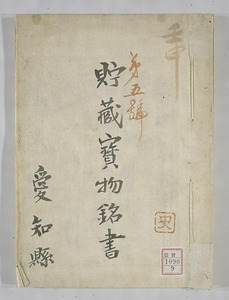 第五號
貯藏寶物銘書
愛知縣
史
1090
9